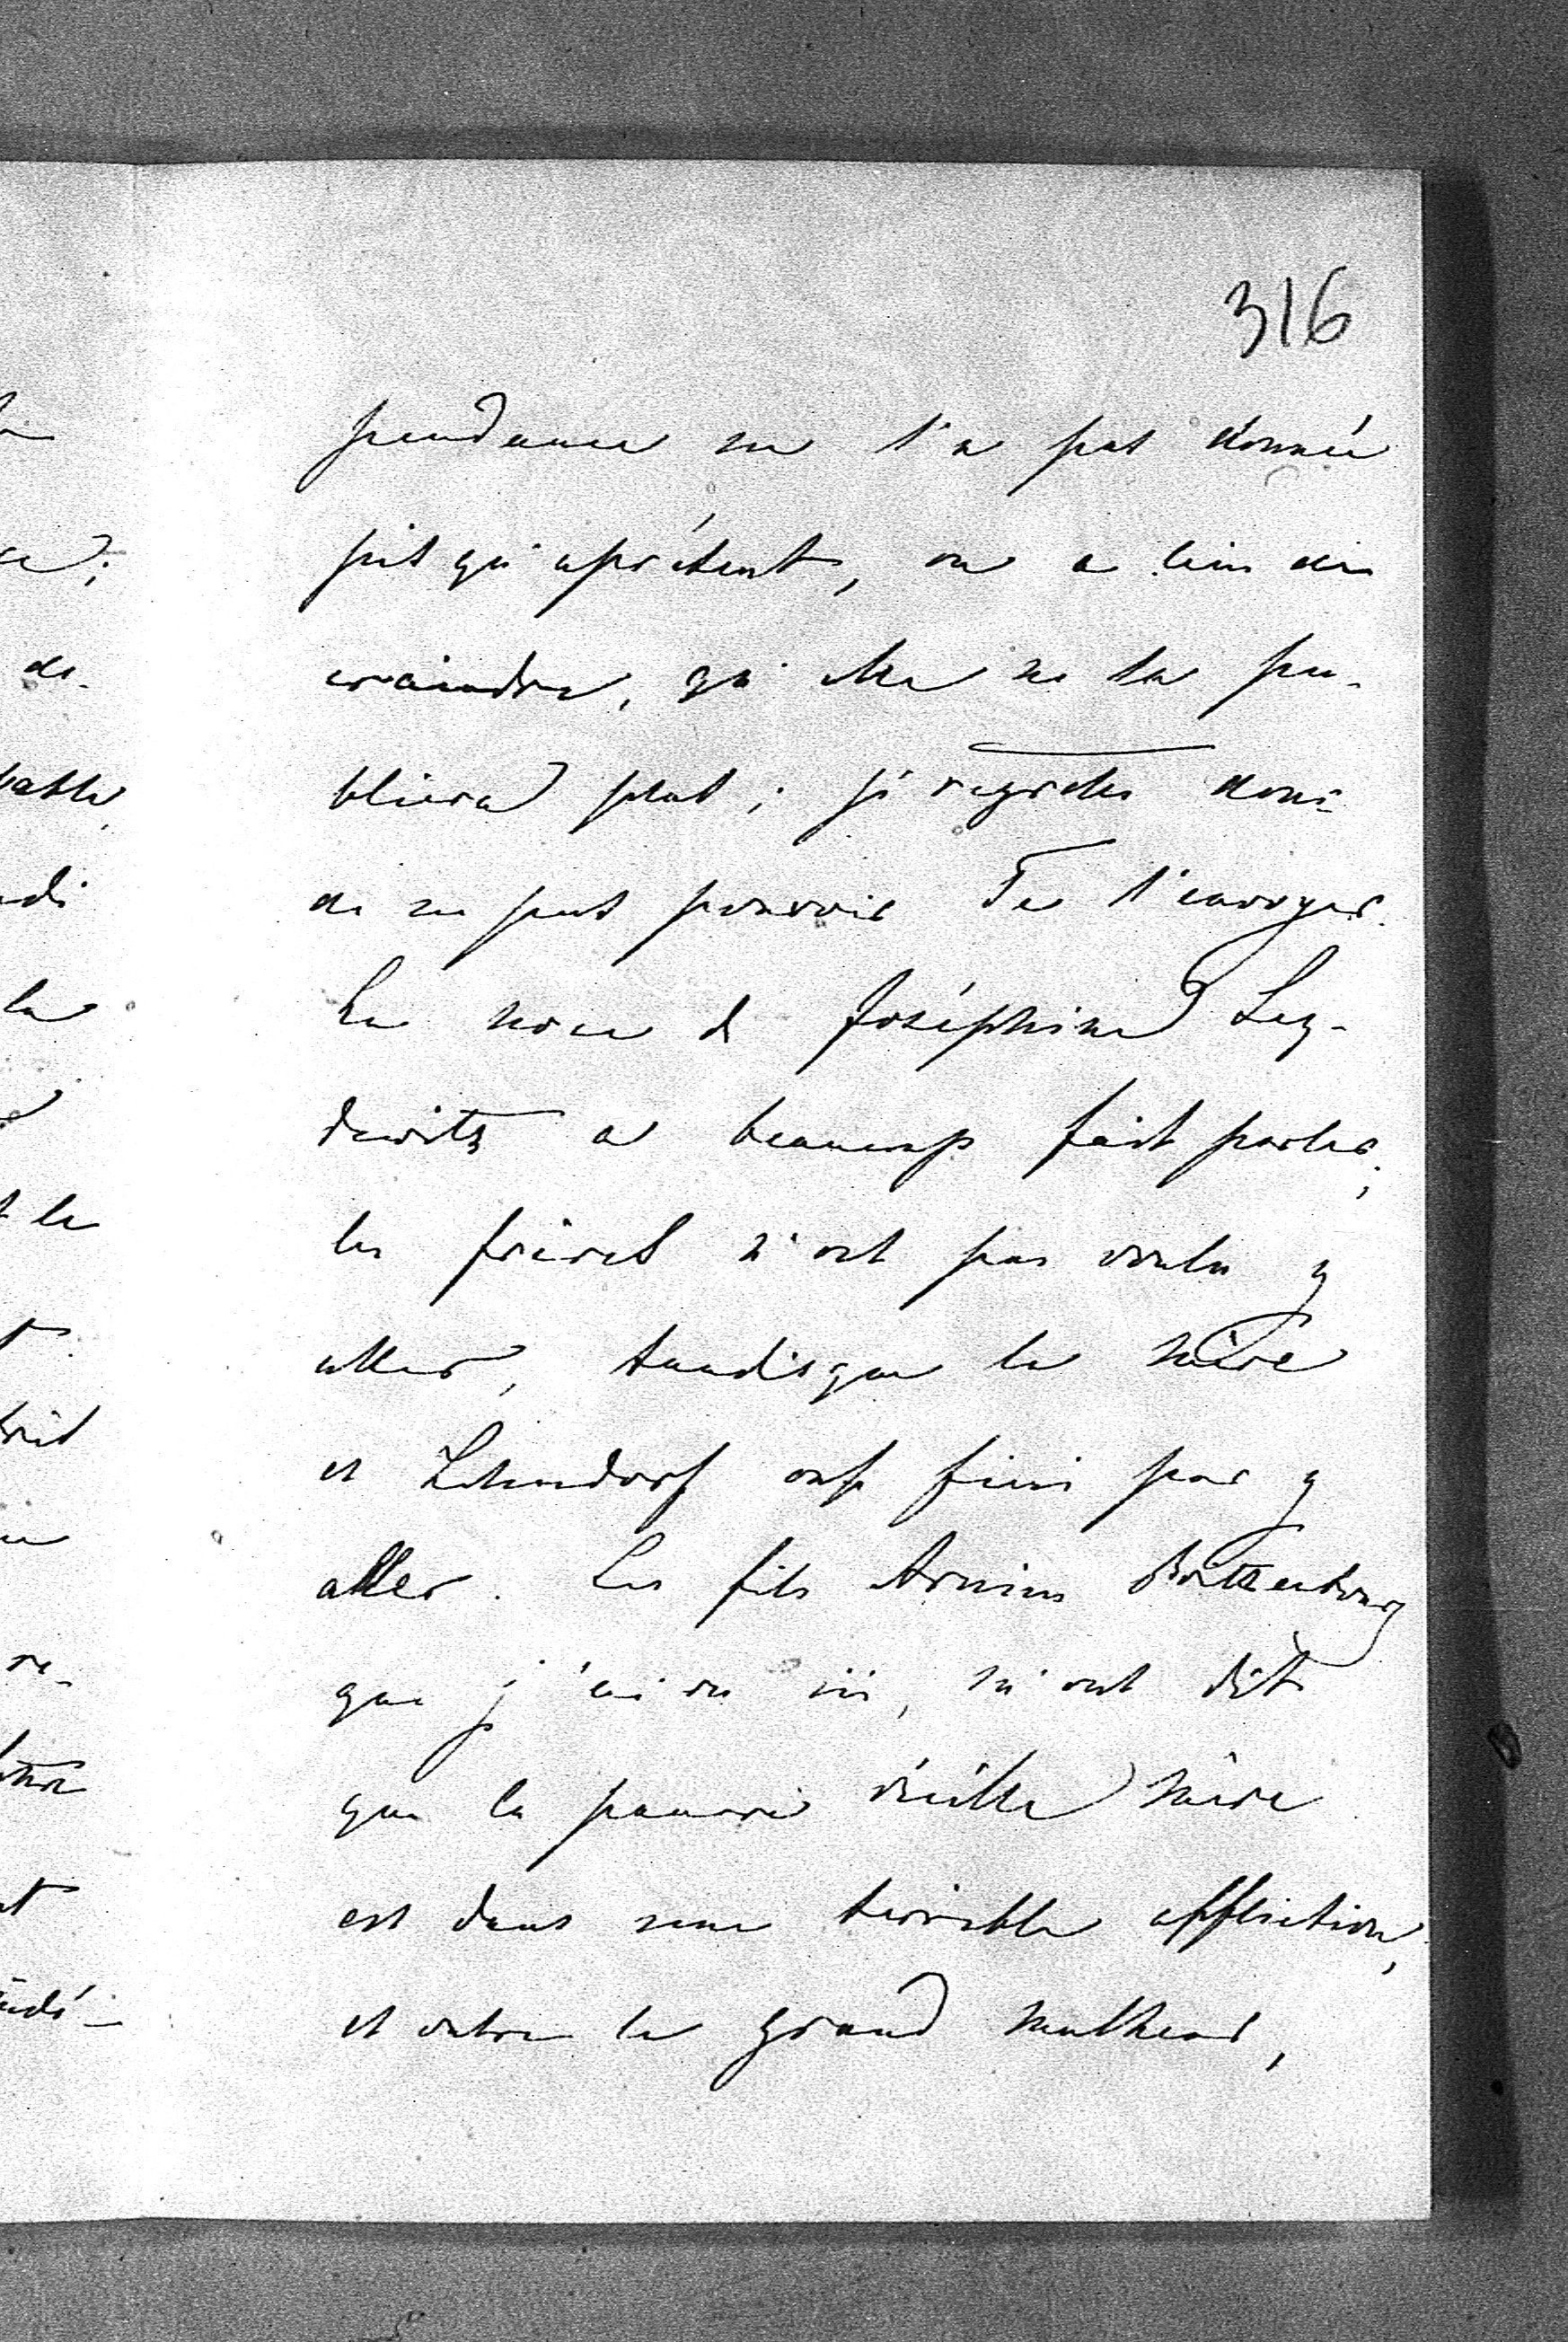 316
pendance ne l'a pas donné
jusqu'aprésent, on a lieu de
craindre, qu'elle ne la pu-
bliera plus; je regrette donc
de ne pas pouvoir Te l'envoyer.
La noce d Joséphine Sey-
dewitz a beaucoup fait parler;
les frères n'ont pas voulu y
aller, tandisque la mère
et Lehndorf ont fini par y
aller. Les fils Arnim Boitzenbourg
que j'ai vu ici, m'ont dit
que la pauvre vieille mère
est dans une terrible affliction,
et outre le grand malheur,